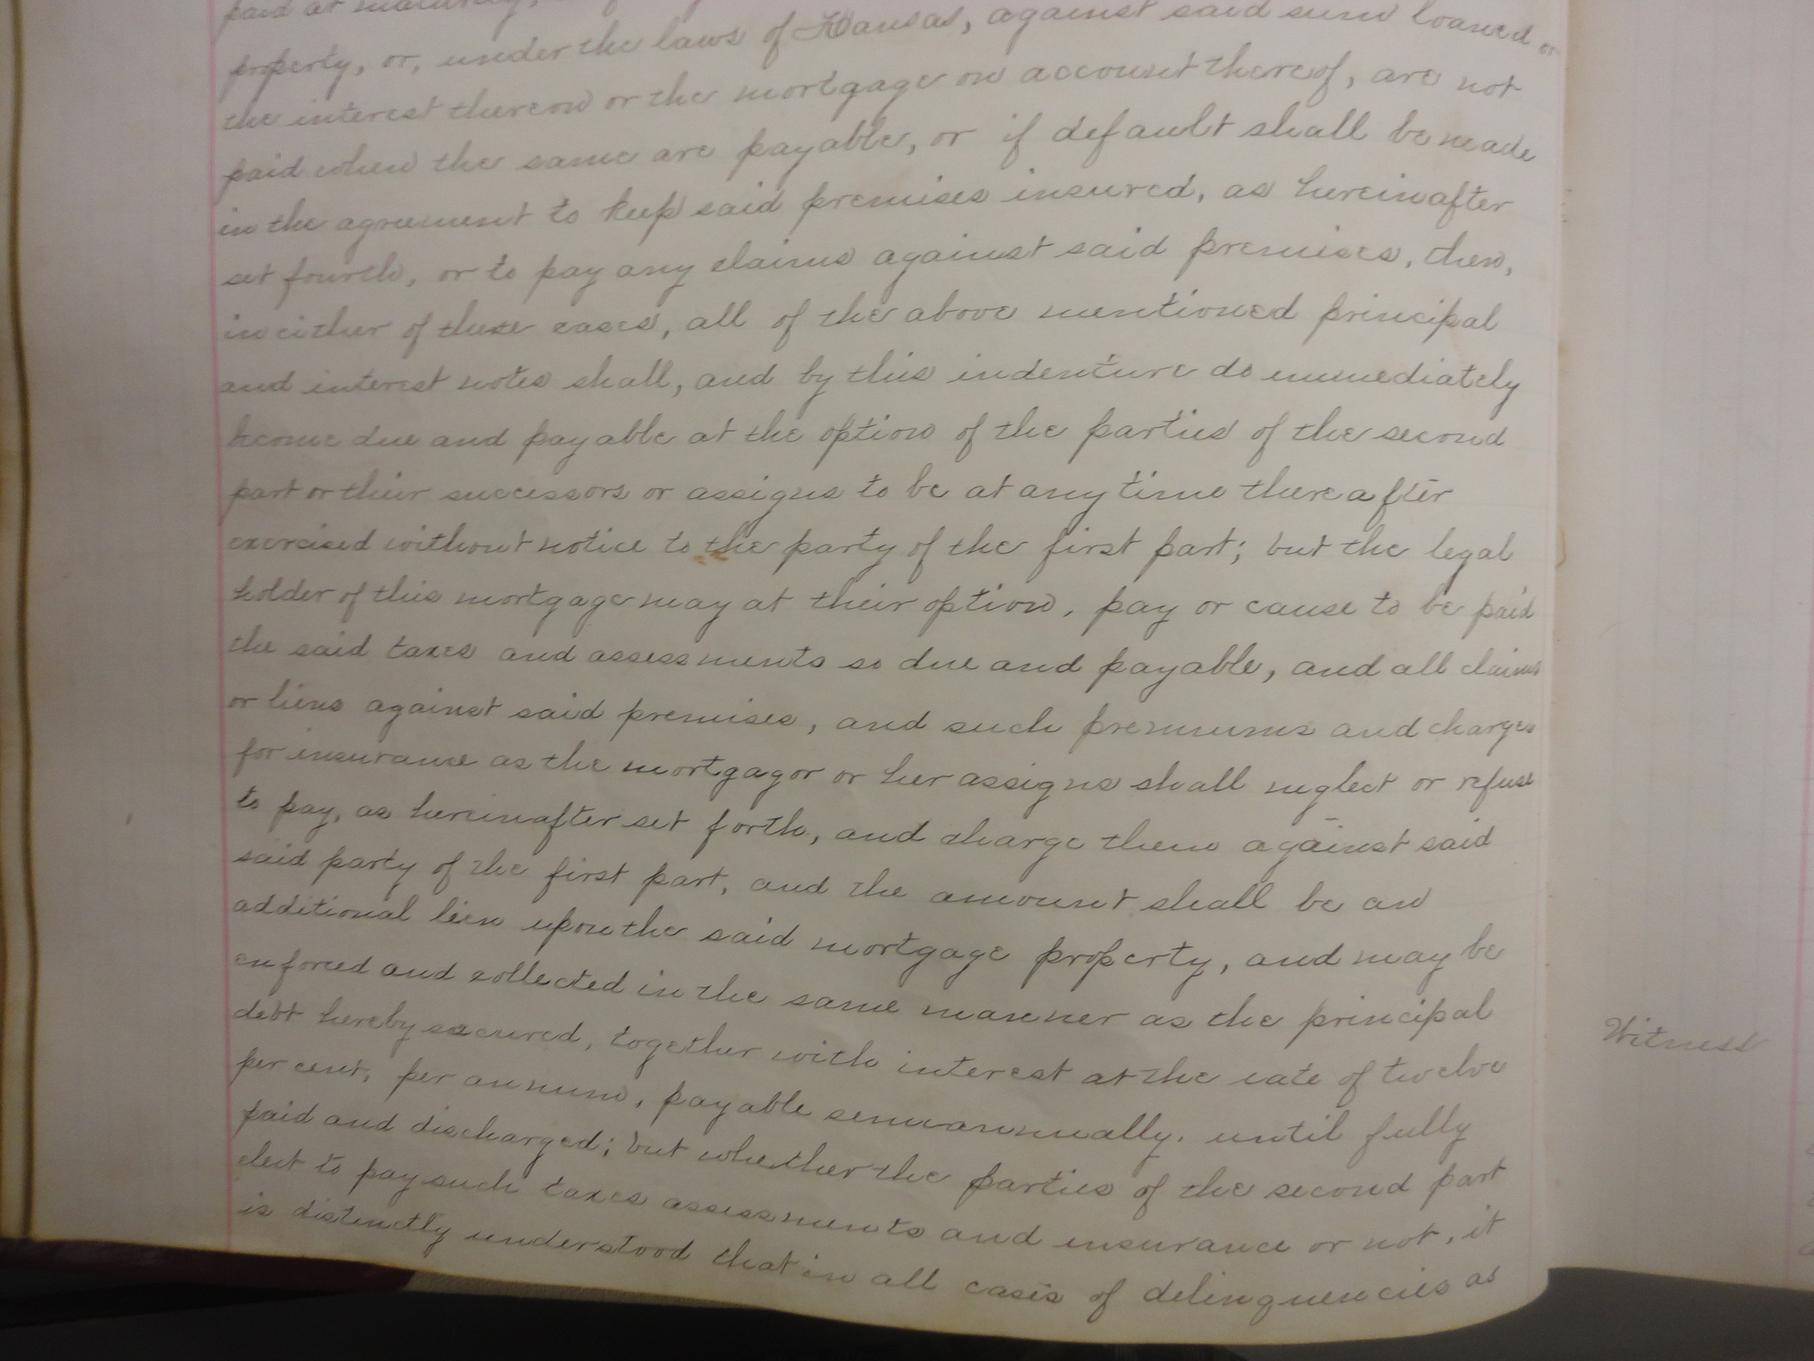 paid at maturity,
property, or, under the laws of Kansas, against said sum loaned or
the interest thereon or the mortgage on account thereof, are not
paid when the same are payable, or if default shall be made
in the agreement to keep said premises insured, as hereinafter
set fourth, or to pay any claims against said premises, then,
in either of these cases, all of the above mentioned principal
and interest notes shall, and by this indenture do immediately
become due and payable at the option of the parties of the second
part or their successors or assigns to be at any time thereafter
exercised without notice to the party of the first part; but the legal
holder of this mortgage may at their option, pay or cause to be paid
the said taxes and assessments so due and payable, and all claims
or liens against said premises, and such premiums and charges
for insurance as the mortgagor or her assigns shall neglect or refuse
to pay, as hereinafter set forth, and charge them against said
said party of the first part, and the amount shall be an
additional lien upon the said mortgage property, and may be
enforced and collected in the same manner as the principal
debt hereby secured, together with interest at the rate of twelve
per cent, per annum, payable semiannually. until fully
paid and discharged; but whether the parties of the second part
elect to pay such taxes assessments and insurance or not, it
is distinctly understood that in all cases of delinquencies as
Witness